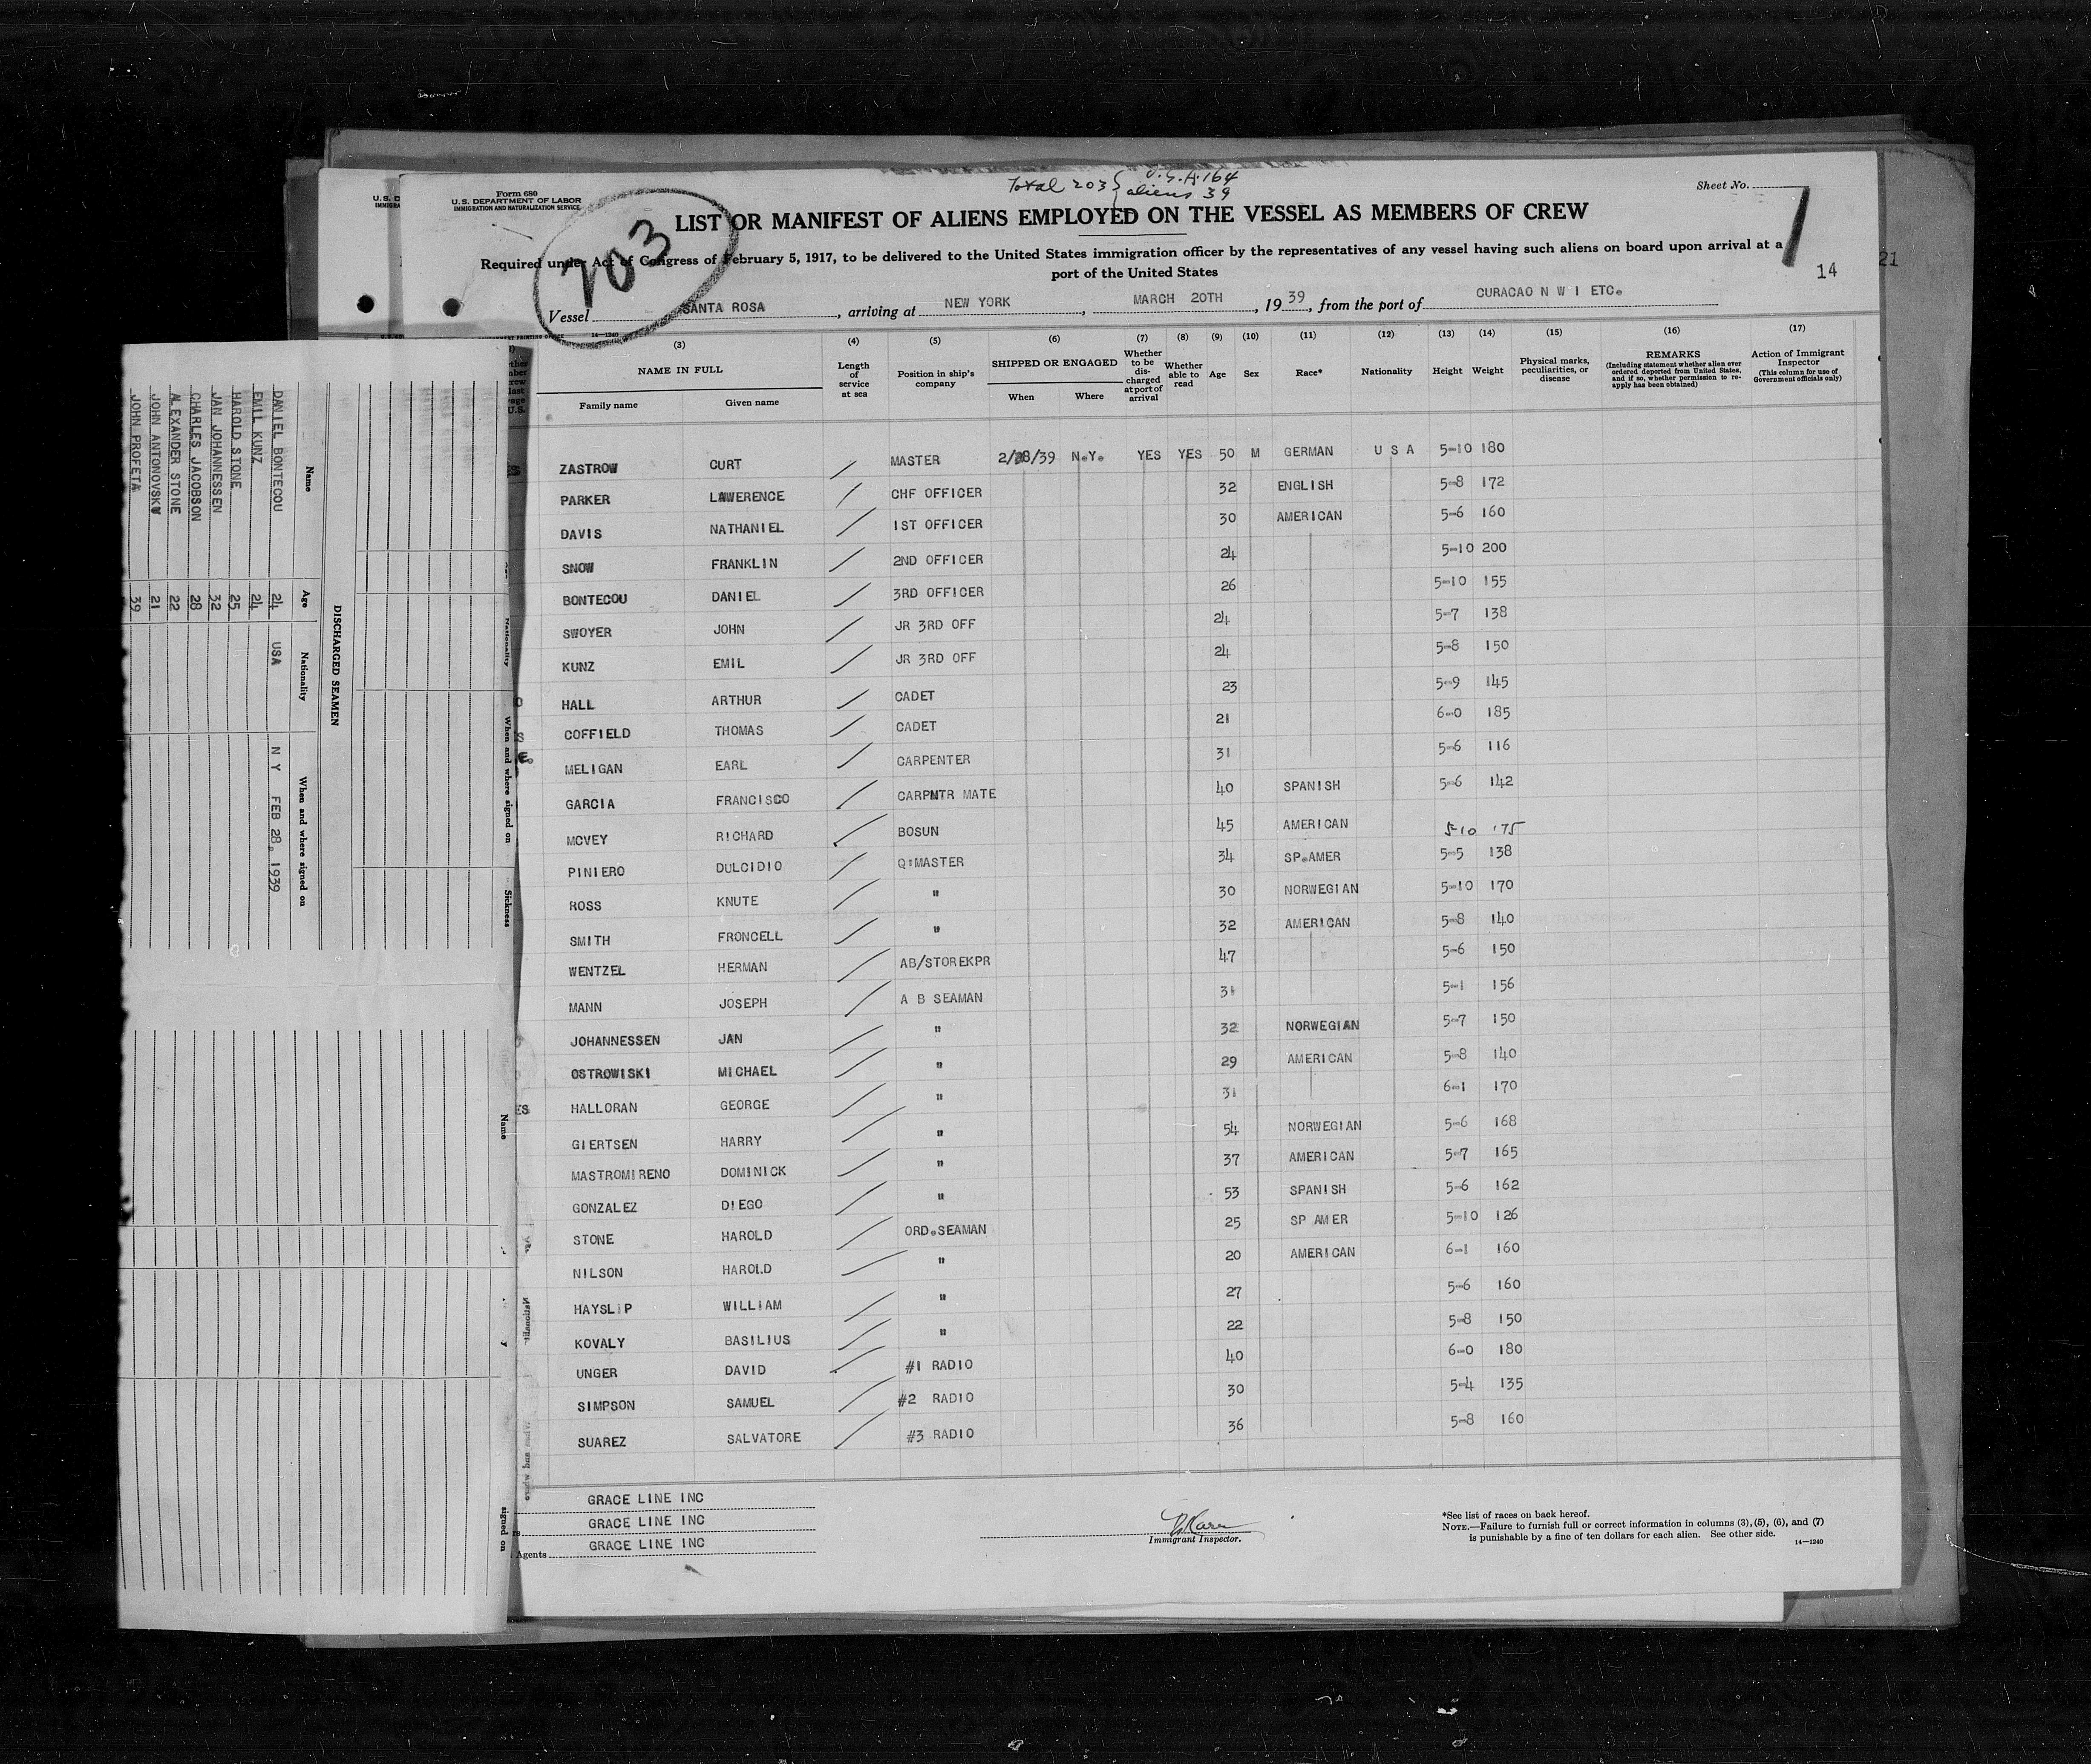 Total 203 { U.S.A. 164
aliens 39
Form 680
U.S. DEPARTMENT OF LABOR
IMMIGRATION AND NATURALIZATION SERVICE
Sheet No.
1
203
LIST OR MANIFEST OF ALIENS EMPLOYED ON THE VESSEL AS MEMBERS OF CREW
Required under Act of Congress of February 5, 1917, to be delivered to the United States immigration officer by the representatives of any vessel having such aliens on board upon arrival at a
port of the United States
14
21
Vessel SANTA ROSA, arriving at NEW YORK, MARCH 20TH, 1939, from the port of CURACAO N W I ETC.
14—1240
(3) (4) (5) (6) (7) (8) (9) (10) (11) (12) (13) (14) (15) (16) (17)
NAME IN FULL
Family name Given name
Length of service at sea
Position in ship's company
SHIPPED OR ENGAGED
When Where
Whether to be discharged at port of arrival
Whether able to read
Age Sex Race* Nationality Height Weight
Physical marks, peculiarities, or disease
REMARKS
(Including statement whether alien ever ordered deported from United States, and if so, whether permission to reapply has been obtained)
Action of Immigrant Inspector
(This column for use of Government officials only)
ZASTROW CURT MASTER 2/28/39 N.Y. YES YES 50 M GERMAN U S A 5-10 180
PARKER LAWERENCE CHF OFFICER 32 ENGLISH 5-8 172
DAVIS NATHANIEL 1ST OFFICER 30 AMERICAN 5-6 160
SNOW FRANKLIN 2ND OFFICER 24 5-10 200
BONTECOU DANIEL 3RD OFFICER 26 5-10 155
SWOYER JOHN JR 3RD OFF 24 5-7 138
KUNZ EMIL JR 3RD OFF 24 5-8 150
HALL ARTHUR CADET 23 5-9 145
COFFIELD THOMAS CADET 21 6-0 185
MELIGAN EARL CARPENTER 31 5-6 116
GARCIA FRANCISCO CARPNTR MATE 40 SPANISH 5-6 142
MCVEY RICHARD BOSUN 45 AMERICAN 5-10 175
PINIERO DULCIDIO Q'MASTER 34 SP.AMER 5-5 138
ROSS KNUTE " 30 NORWEGIAN 5-10 170
SMITH FRONCELL " 32 AMERICAN 5-8 140
WENTZEL HERMAN AB/STOREKPR 47 5-6 150
MANN JOSEPH A B SEAMAN 31 5-1 156
JOHANNESSEN JAN " 32 NORWEGIAN 5-7 150
OSTROWISKI MICHAEL " 29 AMERICAN 5-8 140
HALLORAN GEORGE " 31 6-1 170
GIERTSEN HARRY " 54 NORWEGIAN 5-6 168
MASTROMIRENO DOMINICK " 37 AMERICAN 5-7 165
GONZALEZ DIEGO " 53 SPANISH 5-6 162
STONE HAROLD ORD.SEAMAN 25 SP AMER 5-10 126
NILSON HAROLD " 20 AMERICAN 6-1 160
HAYSLIP WILLIAM " 27 5-6 160
KOVALY BASILIUS " 22 5-8 150
UNGER DAVID #1 RADIO 40 6-0 180
SIMPSON SAMUEL #2 RADIO 30 5-4 135
SUAREZ SALVATORE #3 RADIO 36 5-8 160
GRACE LINE INC
GRACE LINE INC
Agents GRACE LINE INC
Immigrant Inspector.
*See list of races on back hereof.
NOTE.—Failure to furnish full or correct information in columns (3), (5), (6), and (7)
is punishable by a fine of ten dollars for each alien. See other side.
14—1240
DISCHARGED SEAMEN
Name Age Nationality When and where signed on
DANIEL BONTECOU 24 USA N Y FEB 28, 1939
EMIL KUNZ 24
HAROLD STONE 25
JAN JOHANNESSEN 32
CHARLES JACOBSON 28
ALEXANDER STONE 22
JOHN ANTONOVSKY 21
JOHN PROFETA 39
Nationality When and where signed on Sickness
Name